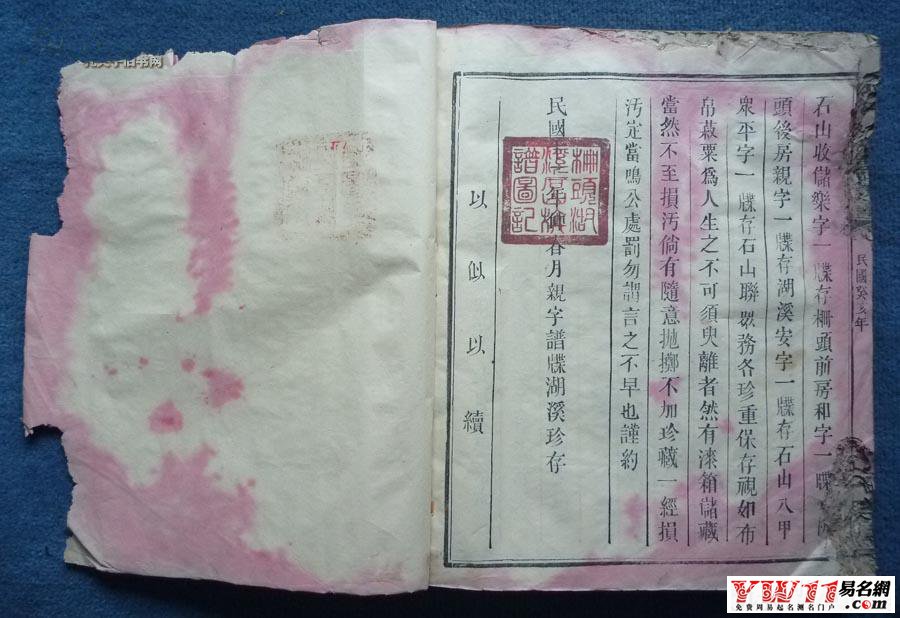 石山收儲樂字一牒存柵頭前房和字一牒
頭後房親字一牒存湖溪安字一牒存石山八甲
衆平字一牒存石山聯眾務各珍重保存視如布
帛菽粟爲人生之不可須臾離者然有漆箱儲藏
當然不至損汚倘有隨意拋擲不加珍藏一經損
汚定當鳴公處罰勿謂言之不早也謹約
民國癸亥年仲春月親字譜牒湖溪珍存
以似以續
柵頭湖
譜圖記
民國癸亥年
YW11易名網
.com
免费周易起名测名门户